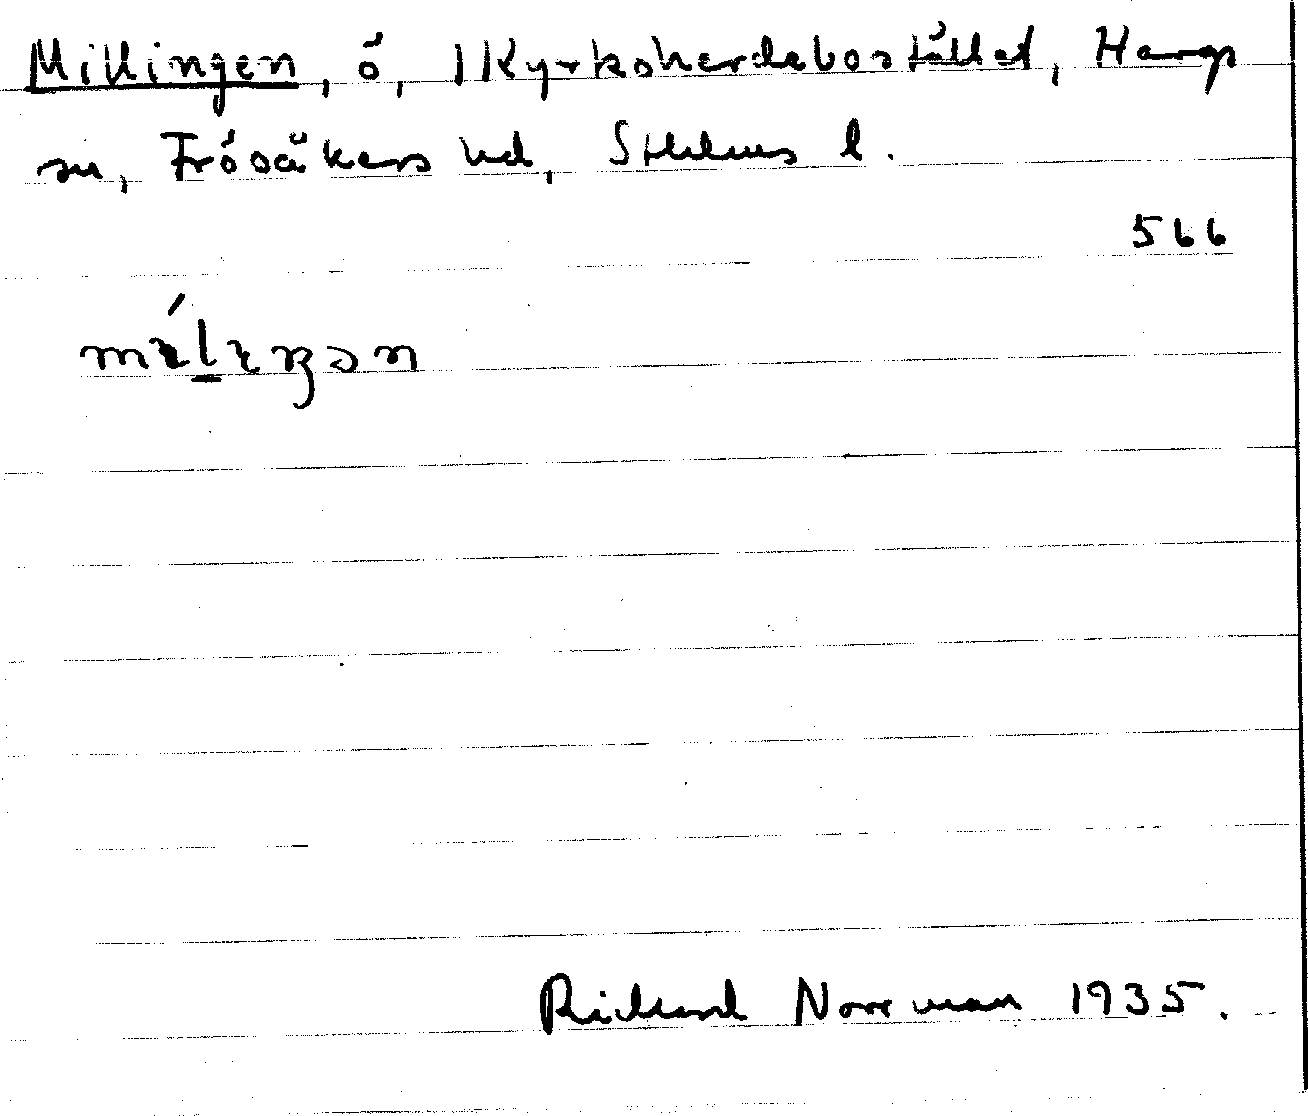 Millingen, ö, 1 Kyrkoherdebostället, Hargs
sn, Frösåkers hd, Sthlms l.
566
Richard Norrman 1935.